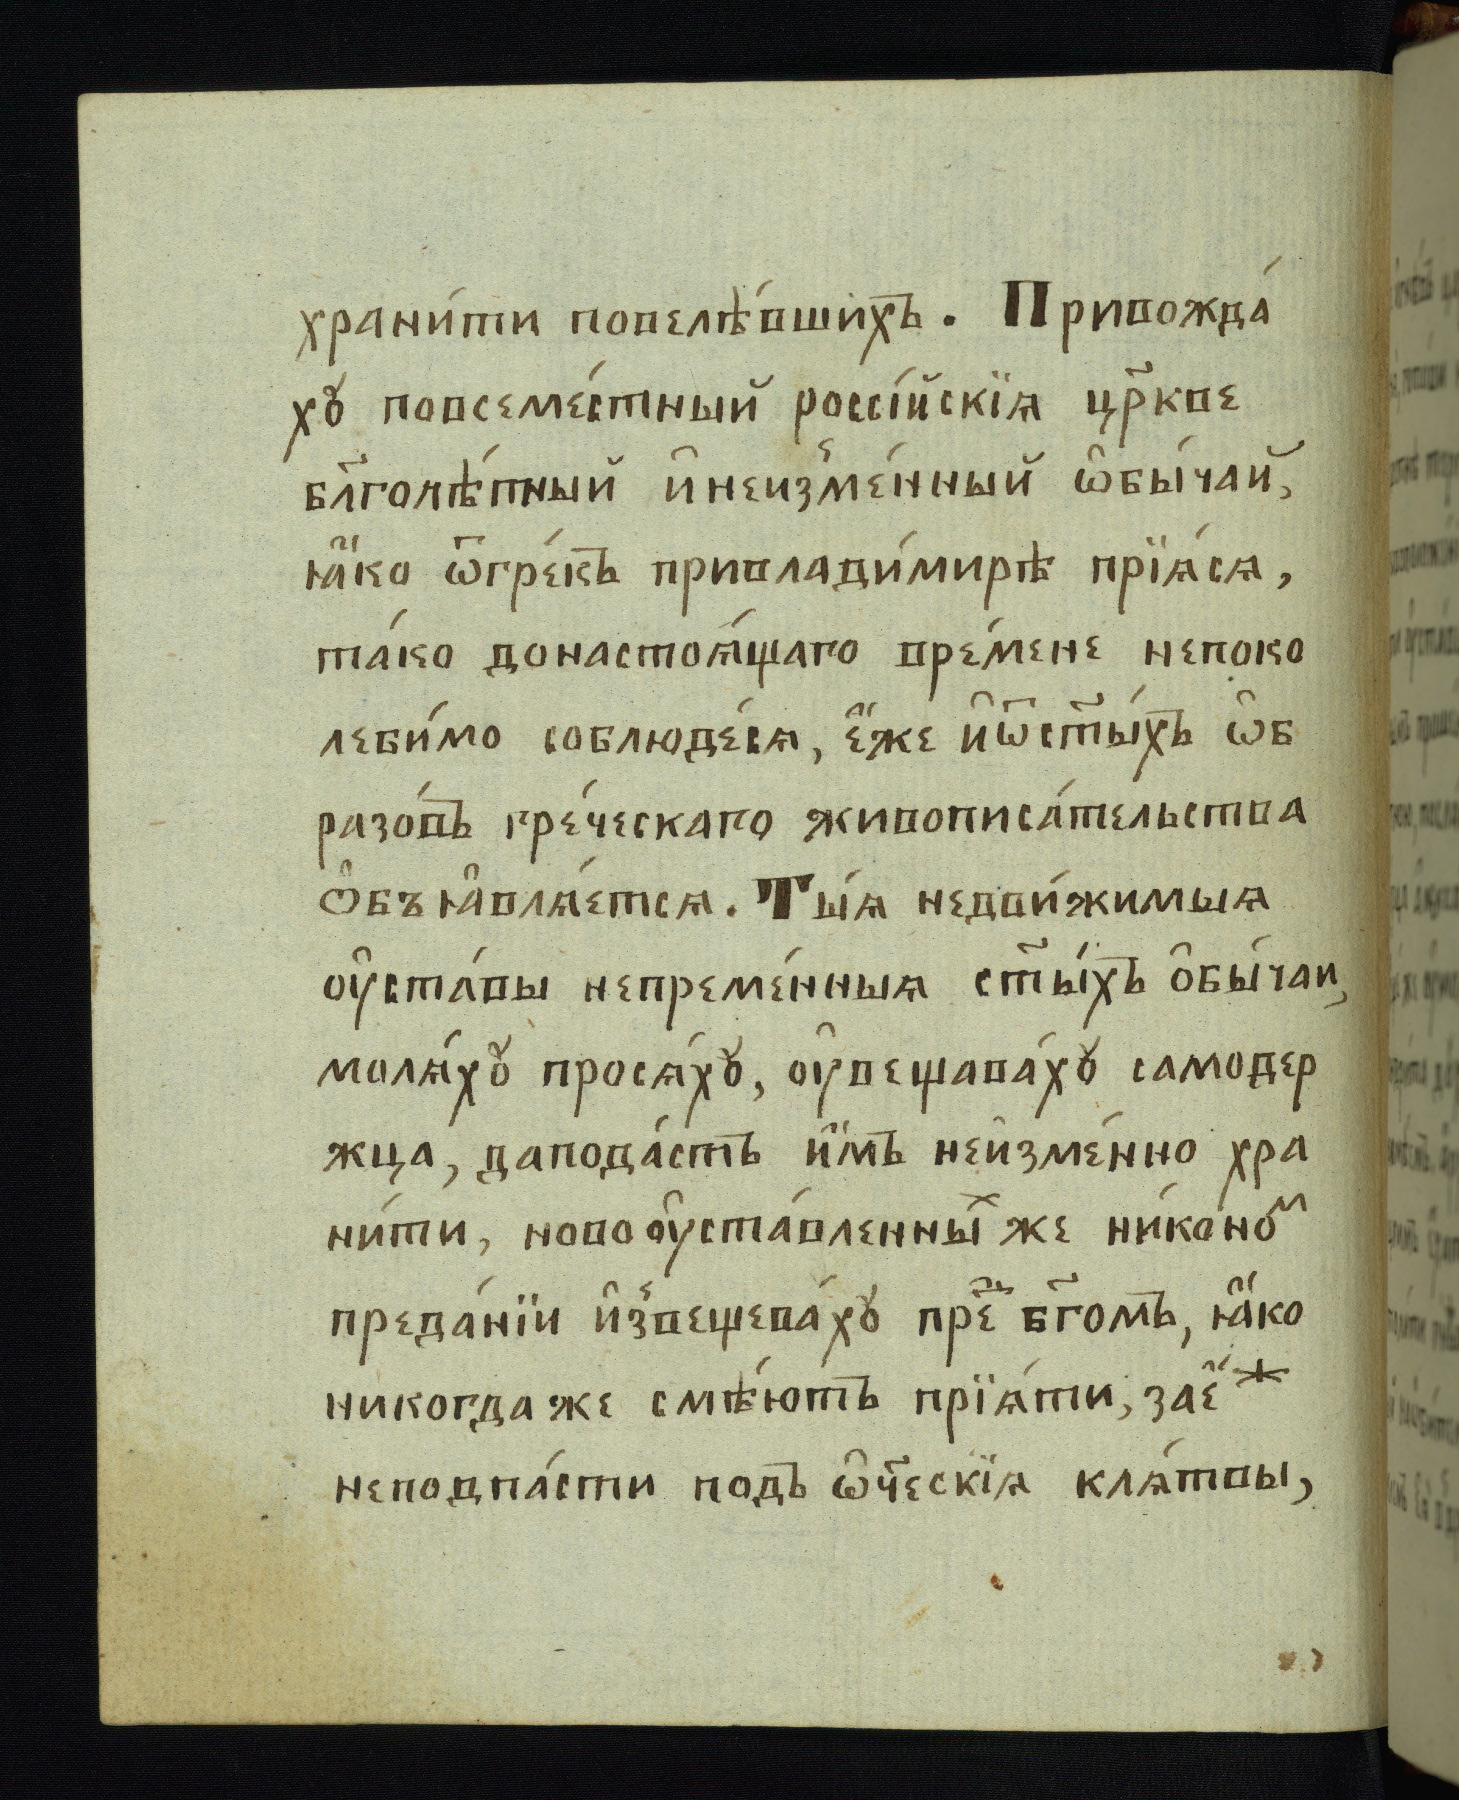 храни́ти повелѣ́вшихъ. Привожда́
хꙋ повсеме́стный россі́йскїѧ цр҃кве
бл҃голѣ́пный и҆неизме́нный ѡ҆бы́чай,
ꙗ҆́ко ѿгре́къ привлади́мирѣ прїѧ́сѧ,
та́ко донастоѧ́щаго вре́мене непоко
леби́мо соблюде́сѧ, є҆́же и҆ѿст҃ы́хъ ѡ҆б
разо́въ гре́ческаго живописа́тельства
ѡ҆бъꙗ҆влѧ́етсѧ. Ты́ѧ недви́жимыѧ
оу҆ста́вы непреме́нныѧ ст҃ы́хъ о҆бы́чаи,
молѧ́хꙋ просѧ́хꙋ, оу҆вещава́хꙋ самодер
жца, дапода́стъ и҆́мъ неи҆зме́нно хра
ни́ти, новооу҆ста́вленныⷯ же ни́коноⷨ
преда́нїи и҆звещева́хꙋ пре҃ бг҃омъ, ꙗ҆́ко
никогдаже смѣ́ютъ прїѧ́ти, зае҆́ⷤ
неподпа́сти подъ ѡ҆ч҃ескїѧ клѧ́твы,